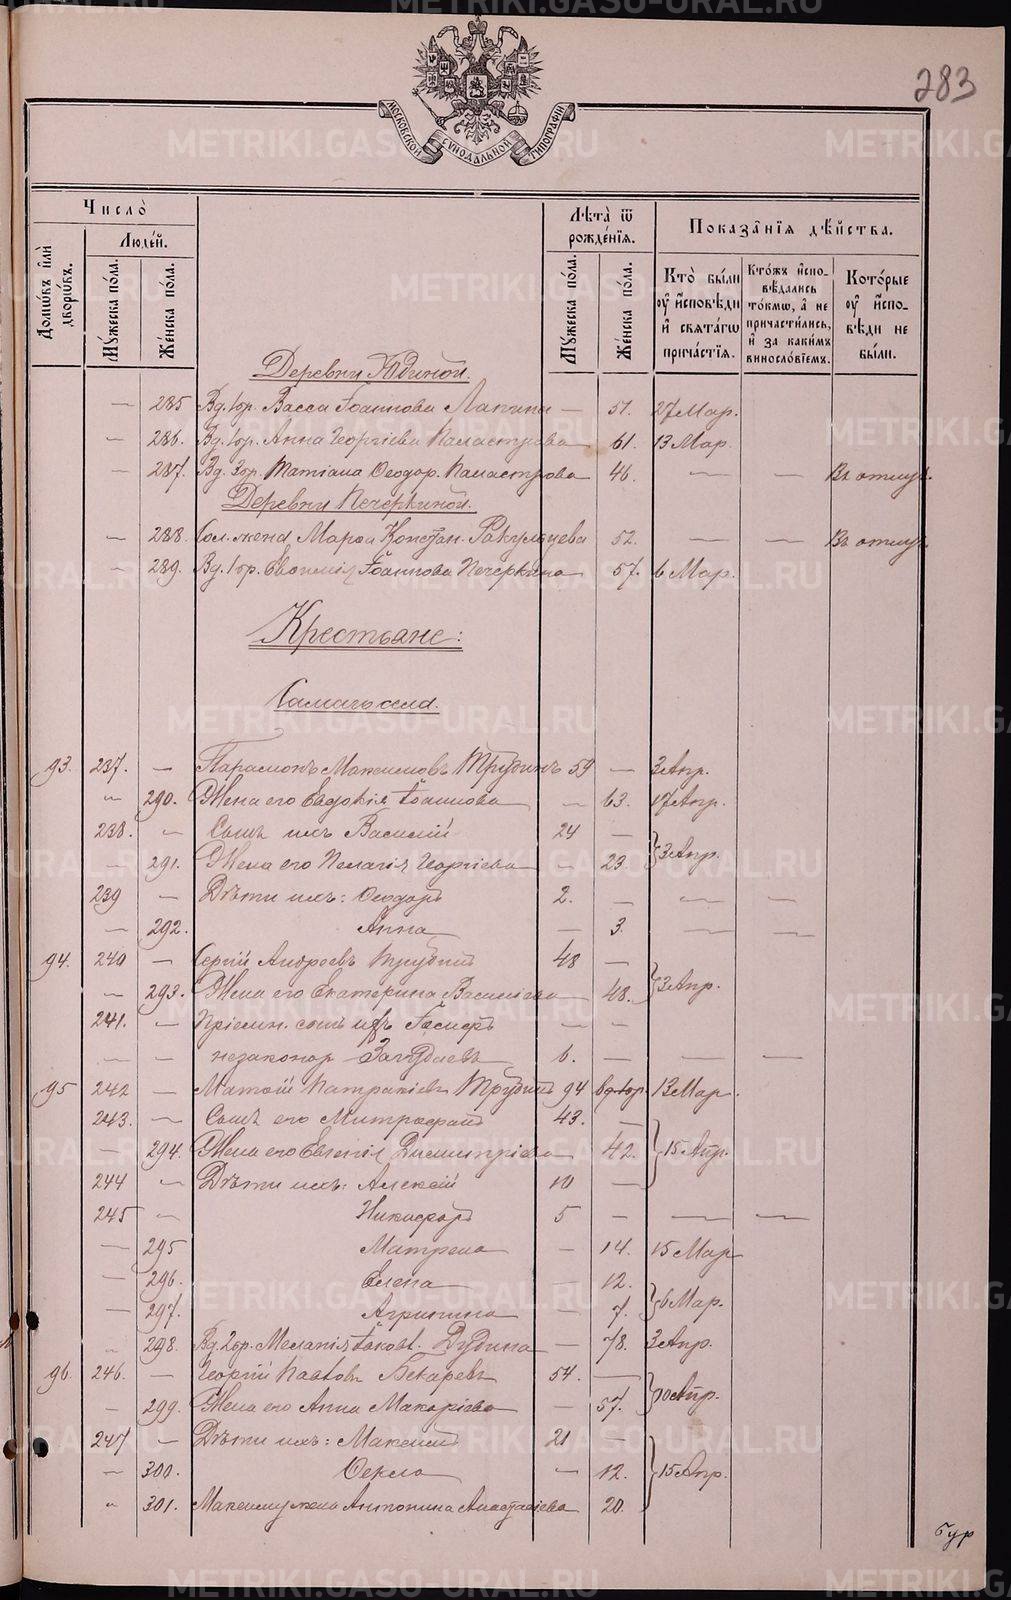 283
МОСКОВСКОЙ СѴНОДАЛЬНОЙ ТИПОГРАФІИ
Число̀
Домѡ́въ и҆лѝ дворѡ́въ.
Люде́й.
Мꙋ́жеска по́ла.
Же́нска по́ла.
Лѣ́та ѿ рожде́нїѧ.
Мꙋ́жеска по́ла.
Же́нска по́ла.
Показа̑нїѧ дѣ́йства.
Кто̀ бы́ли ᲂу҆ и҆сповѣ́ди и҆ свѧта́гѡ прича́стїѧ.
Кто́жъ и҆сповѣ́дались то́кмѡ, а҆ не причасти́лись, и҆ за каки́мъ винослові́емъ.
Кото́рые ᲂу҆ и҆сповѣ́ди не бы́ли.
Деревни Юдиной.
— 285 Вд. 1бр. Васса Іоаннова Лапина — 51. 27 Мар.
— 286. Вд. 1бр. Анна Георгіева 61. 13 Мар.
— 287. Вд. 3бр. Татіана Ѳеодор. 46. — — Въ отлуч.
Деревни Печеркиной.
— 288. Сол. жена Марѳа Констан. Ракульцева 52. — — Въ отлуч.
— 289. Вд. 1бр. Евѳимія Іоаннова Печеркина — 57. 6 Мар.
Крестьяне:
Самаго села.
93. 237. — Парамонъ Максимовъ Трубинъ 59 — 3 Апр.
" 290. Жена его Евдокія Іоаннова — 63. 17 Апр.
238. " Сынъ ихъ Василій 24 —
— 291. Жена его Пелагія Георгіева — 23. } 3 Апр.
239 — Дѣти ихъ: Ѳеодоръ 2. — — —
— 292. Анна — 3. — —
94. 240 — Сергій Андреевъ Трубинъ 48 —
" 293. Жена его Екатерина Василіева — 48. } 3 Апр.
241. " Пріемн. сынъ ихъ — —
— — незаконор. 6. — — —
95 242 — Матѳій Патракіевъ Трубинъ 94 вд. 1бр. 13 Мар.
243. — Сынъ его Митрофанъ 43. —
— 294. Жена его Евгенія Димитріева — 42. } 15 Апр.
244 — Дѣти ихъ: Алексій 10 —
245 — Никифоръ 5 — — —
— 295 Матрена — 14. 15 Мар
— 296. Елена — 12.
— 297. Агрипина — 7. } 6 Мар.
" 298. Вд. 2бр. Меланія Іаковл. Дудина — 78. 3 Апр.
96. 246. — Георгій Павловъ Бекаревъ 54. —
— 299. Жена его Анна Макаріева — 57. } 10 Апр.
247 — Дѣти ихъ: Максимъ 21 —
— 300. Ѳекла — 12. } 15 Апр.
" 301. Максиму жена Антонина Анастасіева 20.